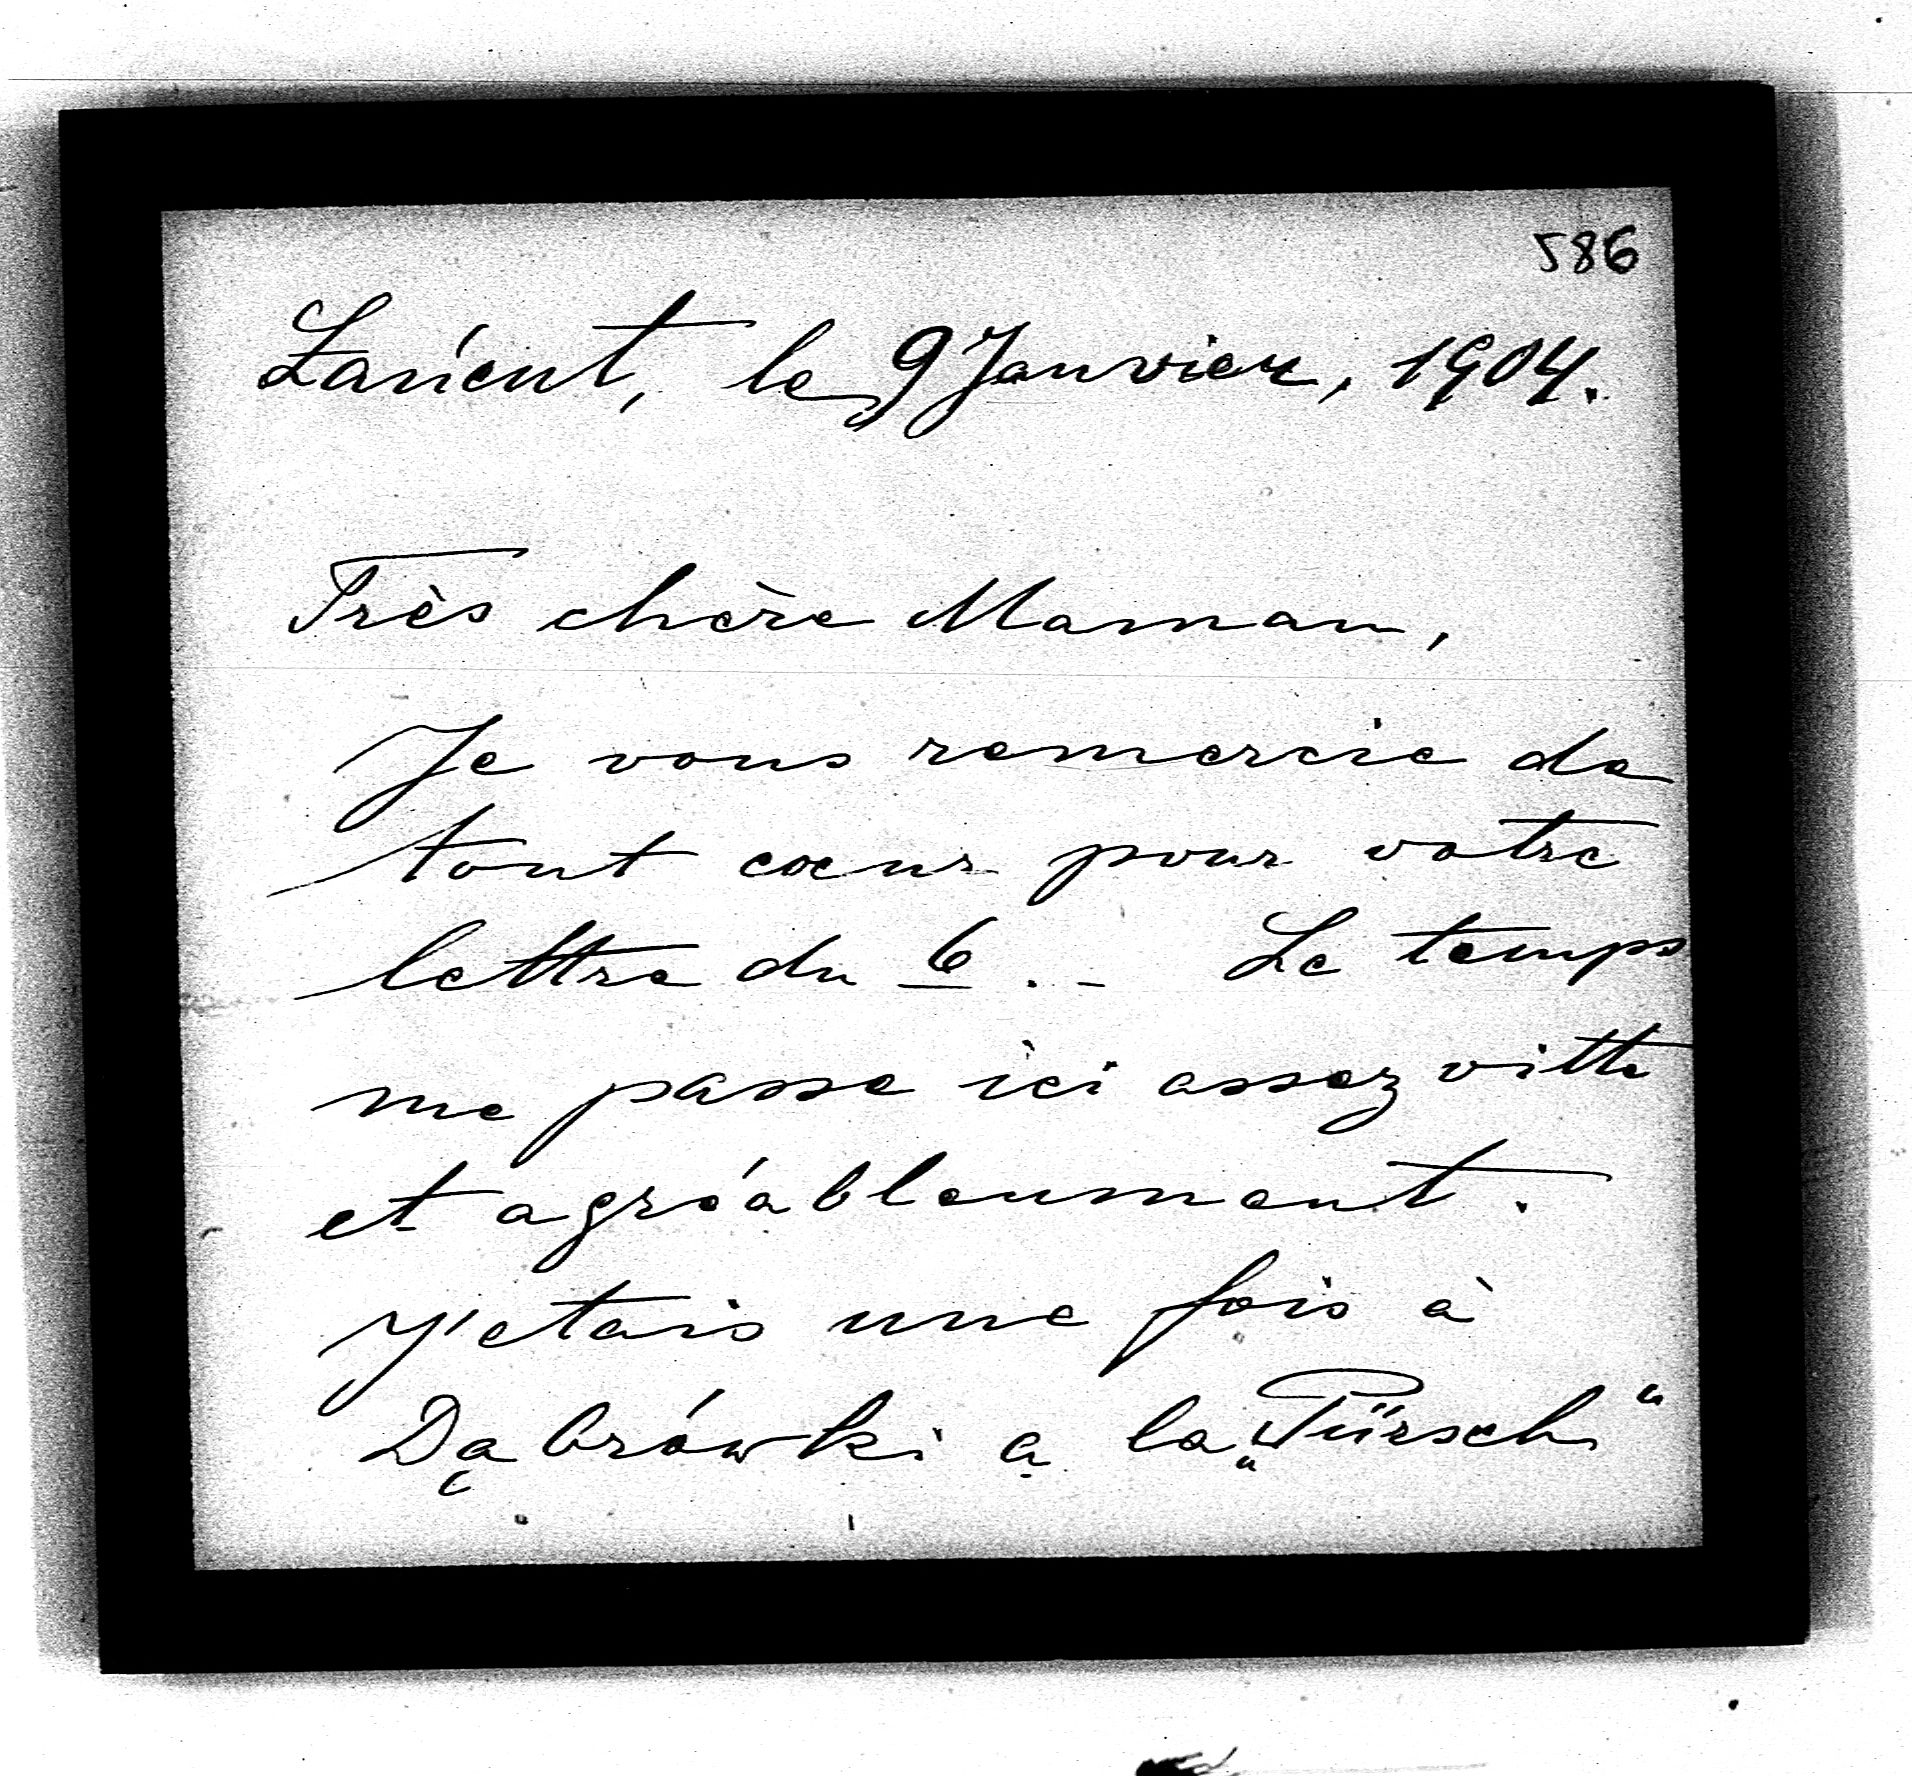 586
Łańcut, le 9 Janvier, 1904.
Très chère Maman,
Je vous remercie de
tout cœur pour votre
lettre du 6. - Le temps
me passe ici assez vitte
et agréableument.
J'etais une fois à
Dąbrówki a la „Pürsch“